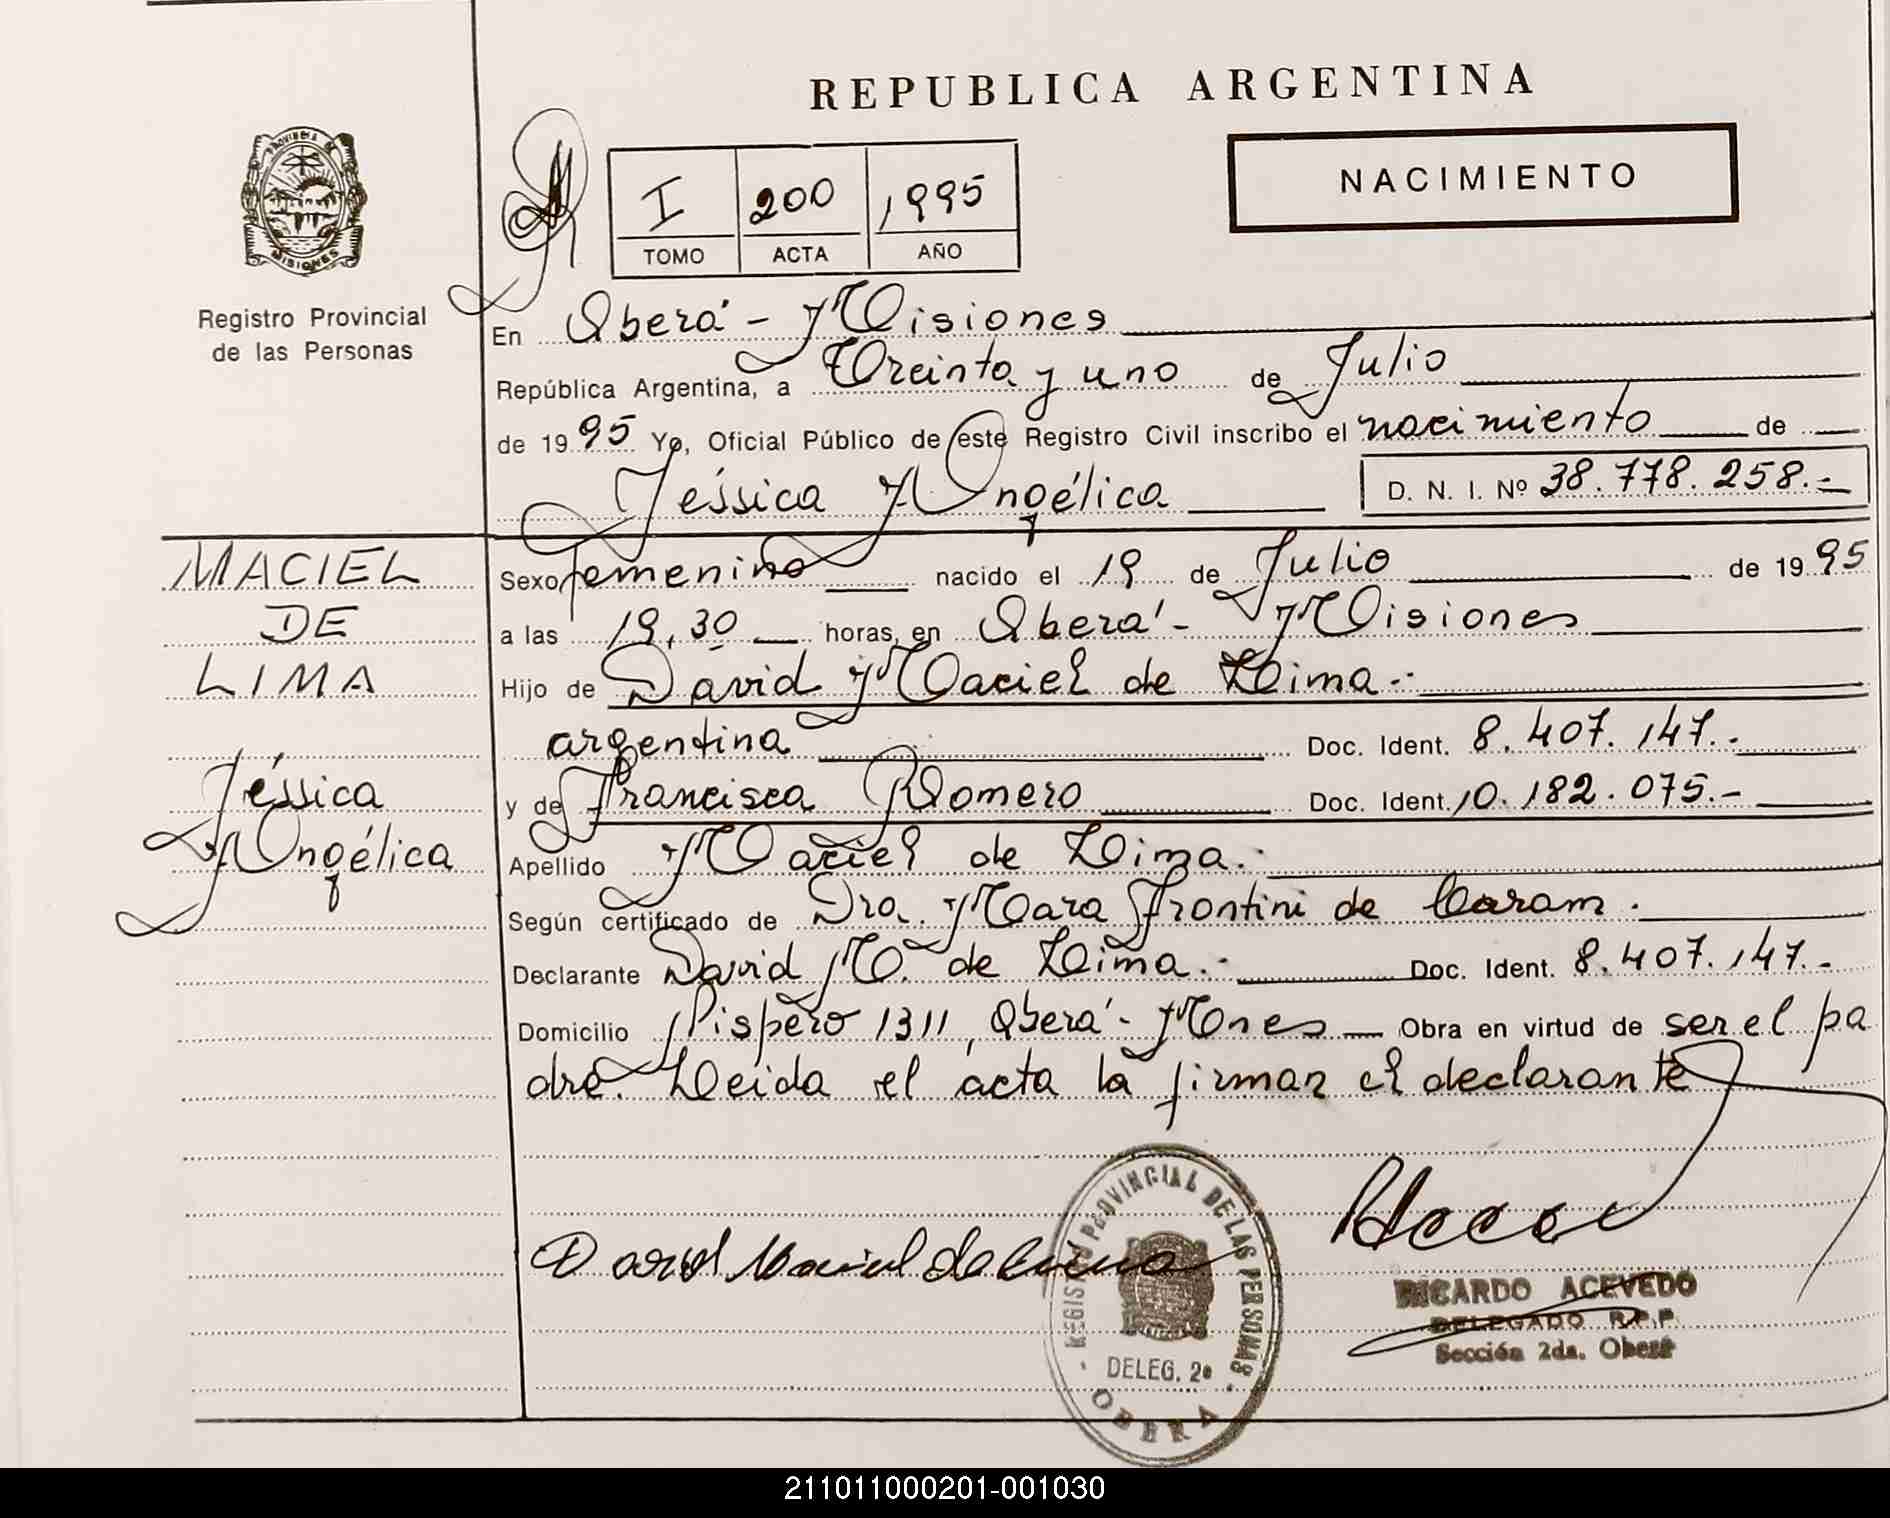 REPUBLICA ARGENTINA
NACIMIENTO
PROVINCIA DE
MISIONES
I 200 1995
TOMO ACTA AÑO
Registro Provincial
de las Personas
En Oberá - Misiones
República Argentina, a Treinta y uno de Julio
de 1995 Yo, Oficial Público de este Registro Civil inscribo el nacimiento de
Jéssica Angélica D. N. I. Nº 38.778.258.-
MACIEL
DE
LIMA
Jéssica
Angélica
Sexo femenino nacido el 19 de Julio de 1995
a las 19,30 horas, en Oberá - Misiones
Hijo de David Maciel de Lima.-
argentina Doc. Ident. 8.407.147.-
y de Francisca Romero Doc. Ident. 10.182.075.-
Apellido Maciel de Lima.-
Según certificado de Dra. Mara Frontini de Caram.
Declarante David M. de Lima.- Doc. Ident. 8.407.147.-
Domicilio 1311, Oberá - Mnes Obra en virtud de ser el pa
dre. Leída el acta la firman el declarante
David Maciel de Lima
REGISTRO PROVINCIAL DE LAS PERSONAS
DELEG. 2ª
OBERA
RICARDO ACEVEDO
DELEGADO R.P.P.
Sección 2da. Oberá
211011000201-001030